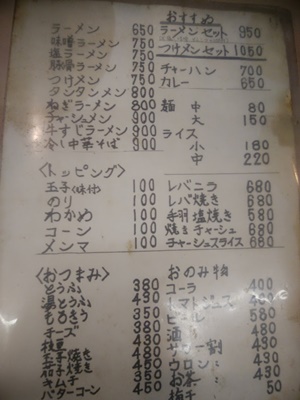 ラーメン 650
味噌ラーメン 750
塩ラーメン 750
豚骨ラーメン 750
つけメン 750
タンタンメン 800
ねぎラーメン 800
チャーシュメン 900
牛すじラーメン 900
冷し中華そば 900
〈トッピング〉
玉子(味付) 100
のり 100
わかめ 100
コーン 100
メンマ 100
〈おつまみ〉
とうふ 380
湯とうふ 430
もろきう 350
チーズ 380
枝豆
玉子焼き
茄子焼き
キムチ
バターコーン 450
おすすめ
ラーメンセット 950
つけメンセット 1050
チャーハン 700
カレー 650
麺 中 80
大 150
ライス
小 180
中 220
レバニラ 680
レバ焼き 680
手羽塩焼き 580
焼きチャーシュ 680
チャーシュスライス 680
おのみ物
コーラ 400
トマトジュース 400
ビール 580
酒 480
サワー割 430
ウロン 430
お茶 430
梅干 50